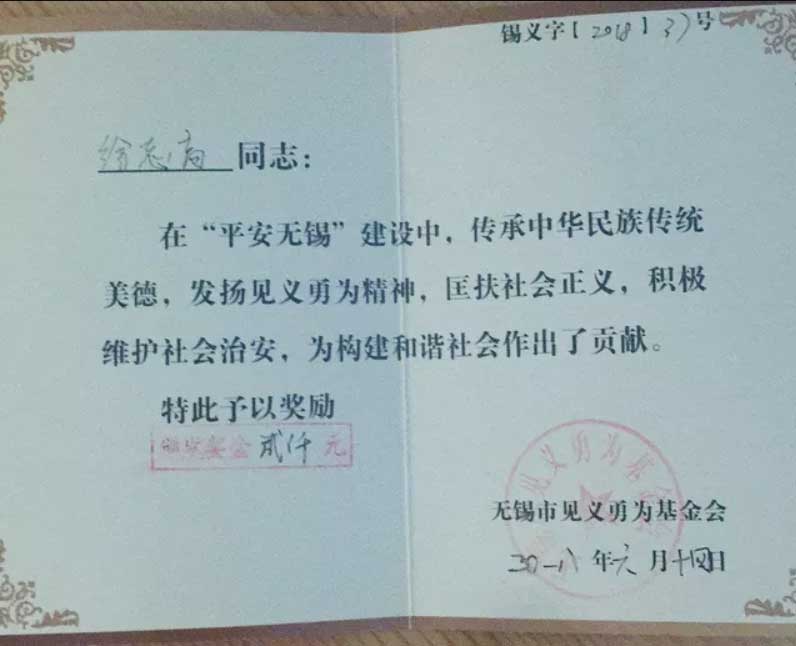 锡义字【2018】37号
徐志高 同志：
在“平安无锡”建设中，传承中华民族传统
美德，发扬见义勇为精神，匡扶社会正义，积极
维护社会治安，为构建和谐社会作出了贡献。
特此予以奖励
奖金贰仟元
见义勇为基金
无锡市见义勇为基金会
二0一八年六月十四日